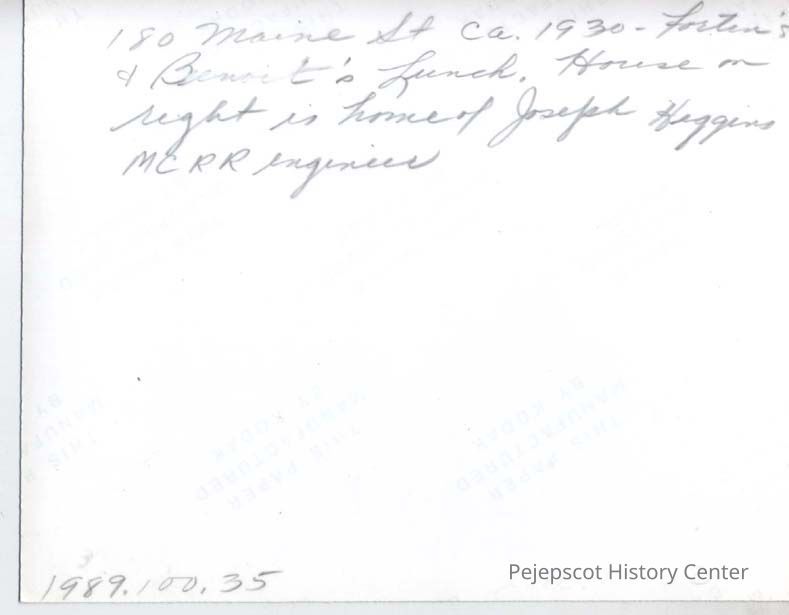 180 Maine St ca. 1930 - Fortin's
& Benoit's Lunch. House on
right is home of Joseph Higgins
MCRR engineer
THIS PAPER
MANUFACTURED
BY KODAK
THIS PAPER
MANUFACTURED
BY KODAK
1989.100.35
Pejepscot History Center